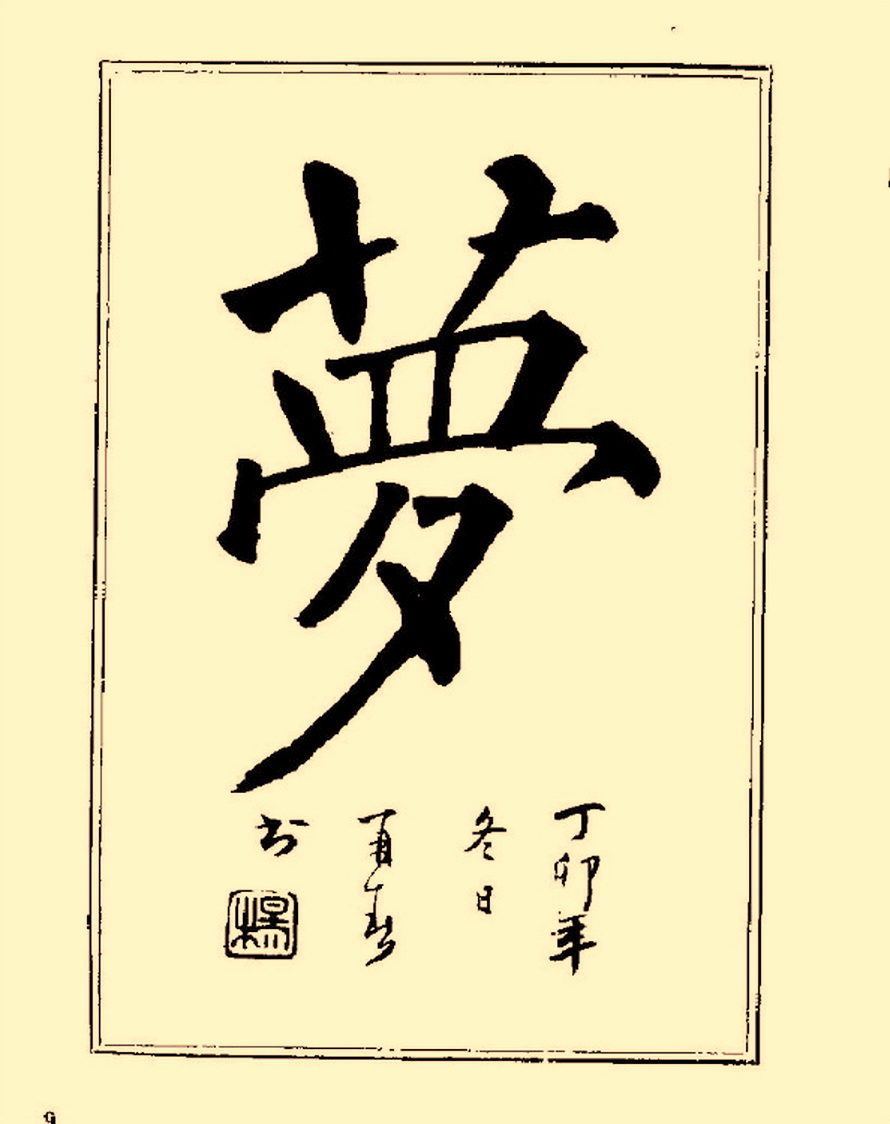 夢
丁卯年
冬日
书
9